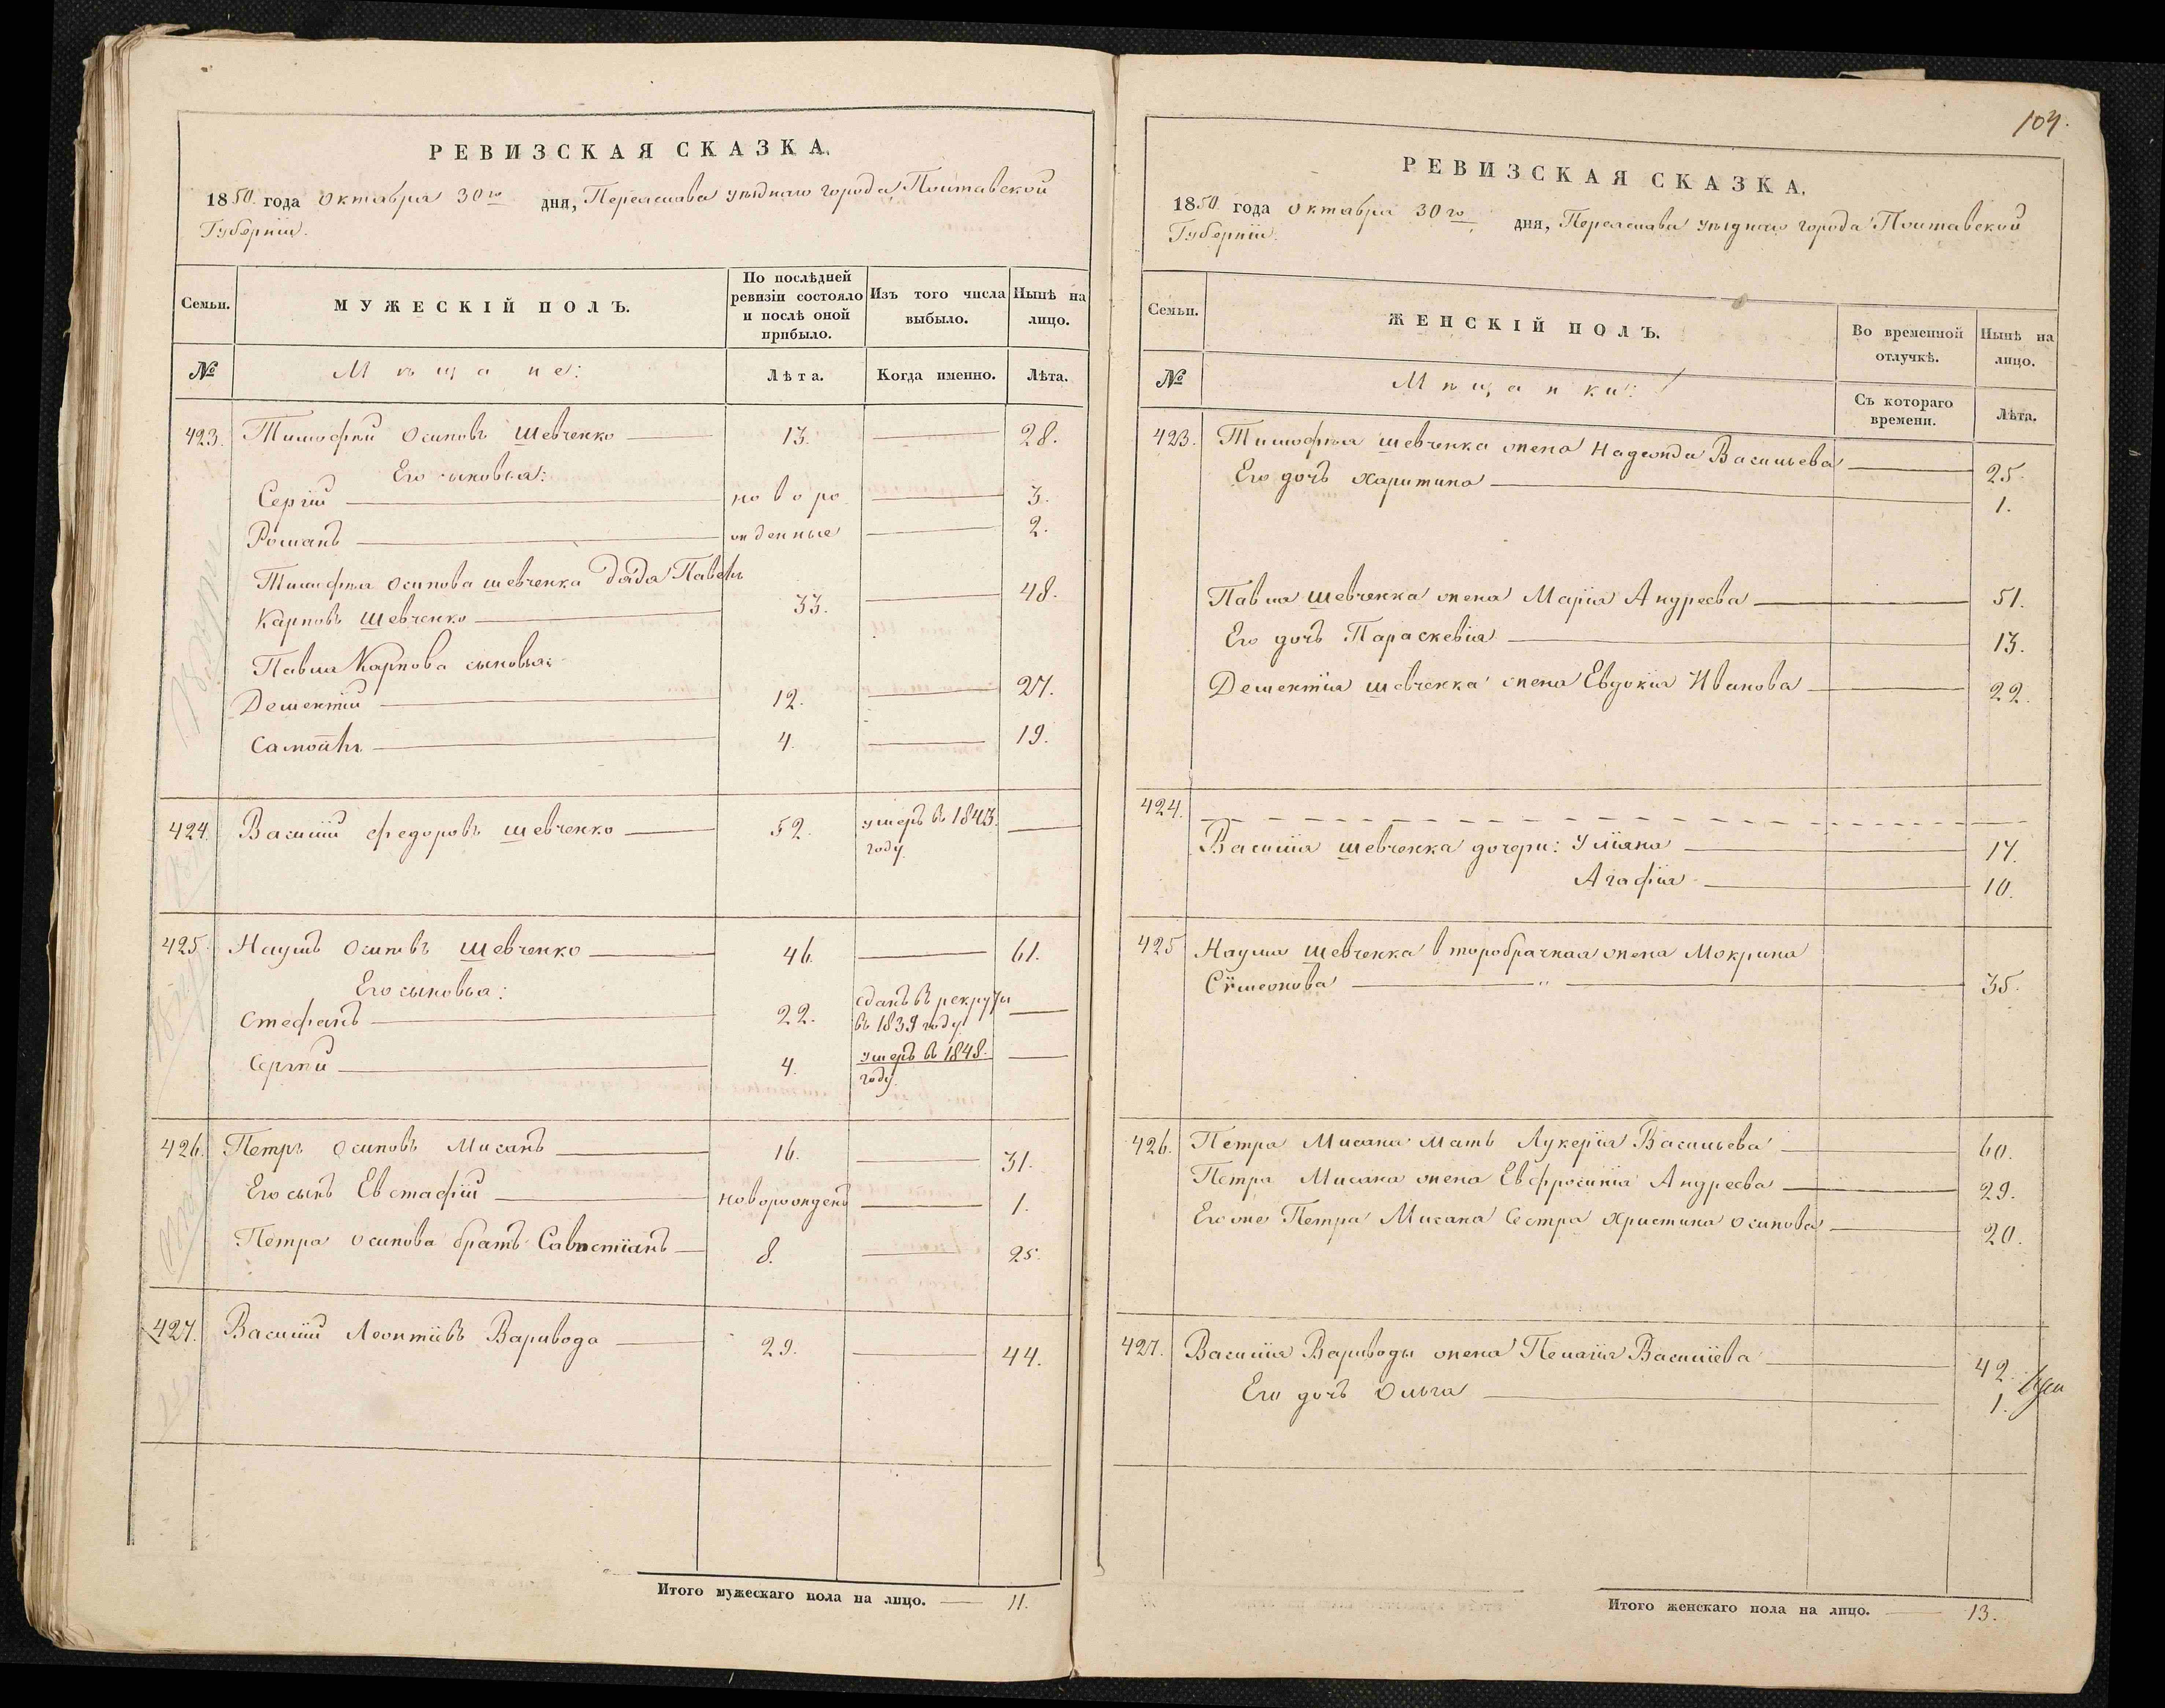 РЕВИЗСКАЯ СКАЗКА.
1850 года Октября 30го дня, Переяслава уѣзднаго города Полтавской
Губерніи.
Семьи.
МУЖЕСКІЙ ПОЛЪ.
По послѣдней
ревизіи состояло
и послѣ оной
прибыло.
Изъ того числа
выбыло.
Нынѣ на
лицо.
№
Мѣщане:
Лѣта.
Когда именно.
Лѣта.
423. Тимофѣй Осиповъ Шевченко 13. 28.
Его сыновья:
Сергій ново ро 3.
Романъ жденные 2.
Тимофѣя Осипова Шевченка дядя Павелъ
Карповъ Шевченко 33. 48.
Павла Карпова сыновья:
Дементій 12. 27.
Самойлъ 4. 19.
424. Василій Федоровъ Шевченко 52. умеръ въ 1843.
году.
425. Наумъ Осиповъ Шевченко 46. 61.
Его сыновья:
Стефанъ 22. сданъ въ рекруты
въ 1839 году
Сергѣй 4. умеръ въ 1848.
году.
426. Петръ Осиповъ Мисанъ 16. 31.
Его сынъ Евстафій новорожденъ 1.
Петра Осипова братъ Савостіанъ 8. 25.
427. Василій Леонтіевъ Варивода 29. 44.
Итого мужескаго пола на лицо. 11.
104.
РЕВИЗСКАЯ СКАЗКА.
1850 года Октября 30го дня, Переяслава уѣзднаго города Полтавской
Губерніи.
Семьи.
ЖЕНСКІЙ ПОЛЪ.
Во временной
отлучкѣ.
Нынѣ на
лицо.
№
Мѣщанки:
Съ котораго
времени.
Лѣта.
423. Тимофѣя Шевченка жена Надежда Васильева 25.
Его дочь Харитина 1.
Павла Шевченка жена Марія Андреева 51.
Его дочь Параскевія 13.
Дементія Шевченка жена Евдокія Иванова 22.
424.
Василія Шевченка дочери: Уліяна 17.
Агафія 10.
425 Наума Шевченка второбрачная жена Мокрина
Сѵмеонова 35.
426. Петра Мисана мать Лукерія Васильева 60.
Петра Мисана жена Евфросинія Андреева 29.
Его же Петра Мисана сестра Христина Осипова 20.
427. Василія Вариводы жена Пелагія Василіева 42.
Его дочь Ольга 1.
Итого женскаго пола на лицо. 13.